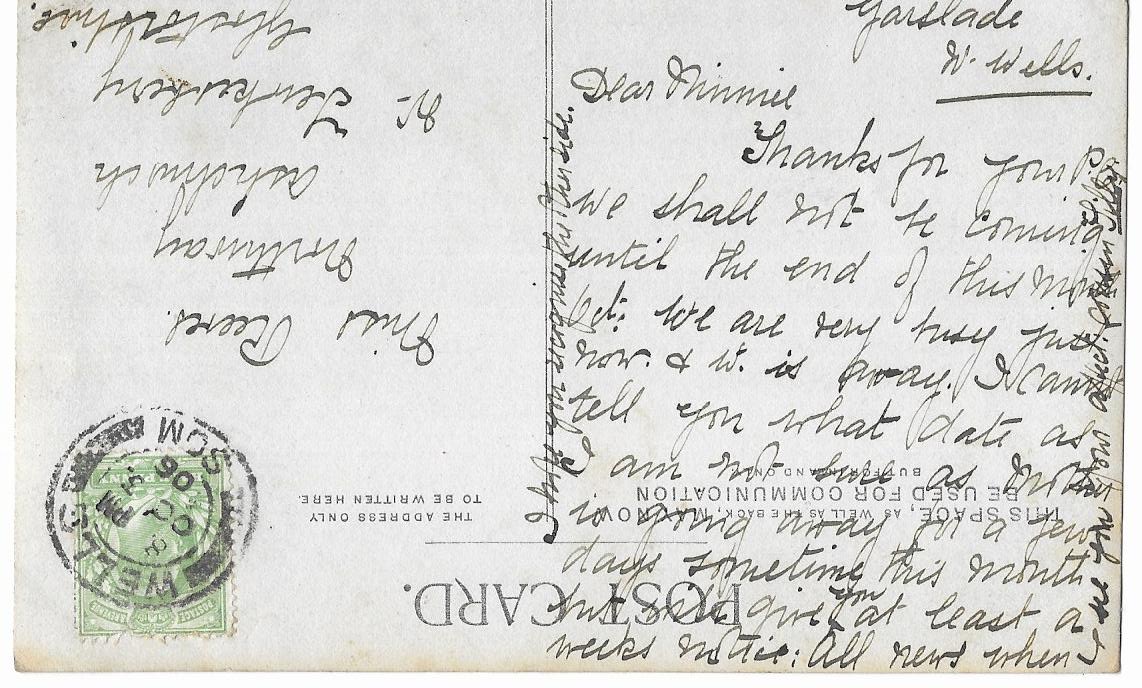 Garslade
W. Wells.
Dear Minnie
Thanks for your P.
We shall not be coming
until the end of this
Oct: We are very busy just
now. & W. is away. I cannot
tell you what date as
I am not sure as
is going away for a few
days sometime this month
but will give you at least a
weeks notice: All news when
I see you. your affect: cousin
I hope
Miss Reeves.
Northway
Ashchurch
Nr. Tewkesbury
Glostershire.
POST CARD.
THIS SPACE, AS WELL AS THE BACK, MAY NOW
BE USED FOR COMMUNICATION
BUT FOR INLAND ONLY
THE ADDRESS ONLY
TO BE WRITTEN HERE.
WELLS
SOM
PM
OC
06
POSTAGE